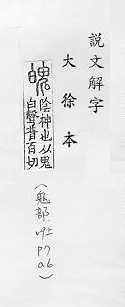 說文解字
大徐本
魄
陰神也从鬼
白聲普百切
(鬼部